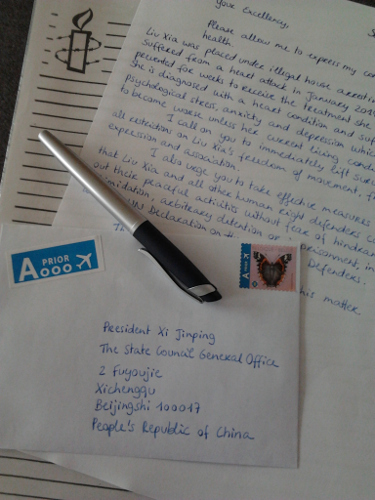 Your Excellency,
Please allow me to express my con
health.
Liu Xia was placed under illegal house arrest in
suffered from a heart attack in January 201
prevented for weeks to receive the treatment she
She is diagnosed with a heart condition and suf
psychological stress, anxiety and depression which
to become worse unless her current living condi
I call on you to immediately lift surve
all restrictions on Liu Xia's freedom of movement, f
expression and association
I also urge you to take effective measures
that Liu Xia and all other human right defenders ca
out their peaceful activities without fear of hindran
imidation, arbitrary detention or imprisonment, in
UN Declaration on
Defenders.
his matter.
A PRIOR
President Xi Jinping
The State Council General Office
2 Fuyoujie
Xichengqu
Beijingshi 100017
People's Republic of China